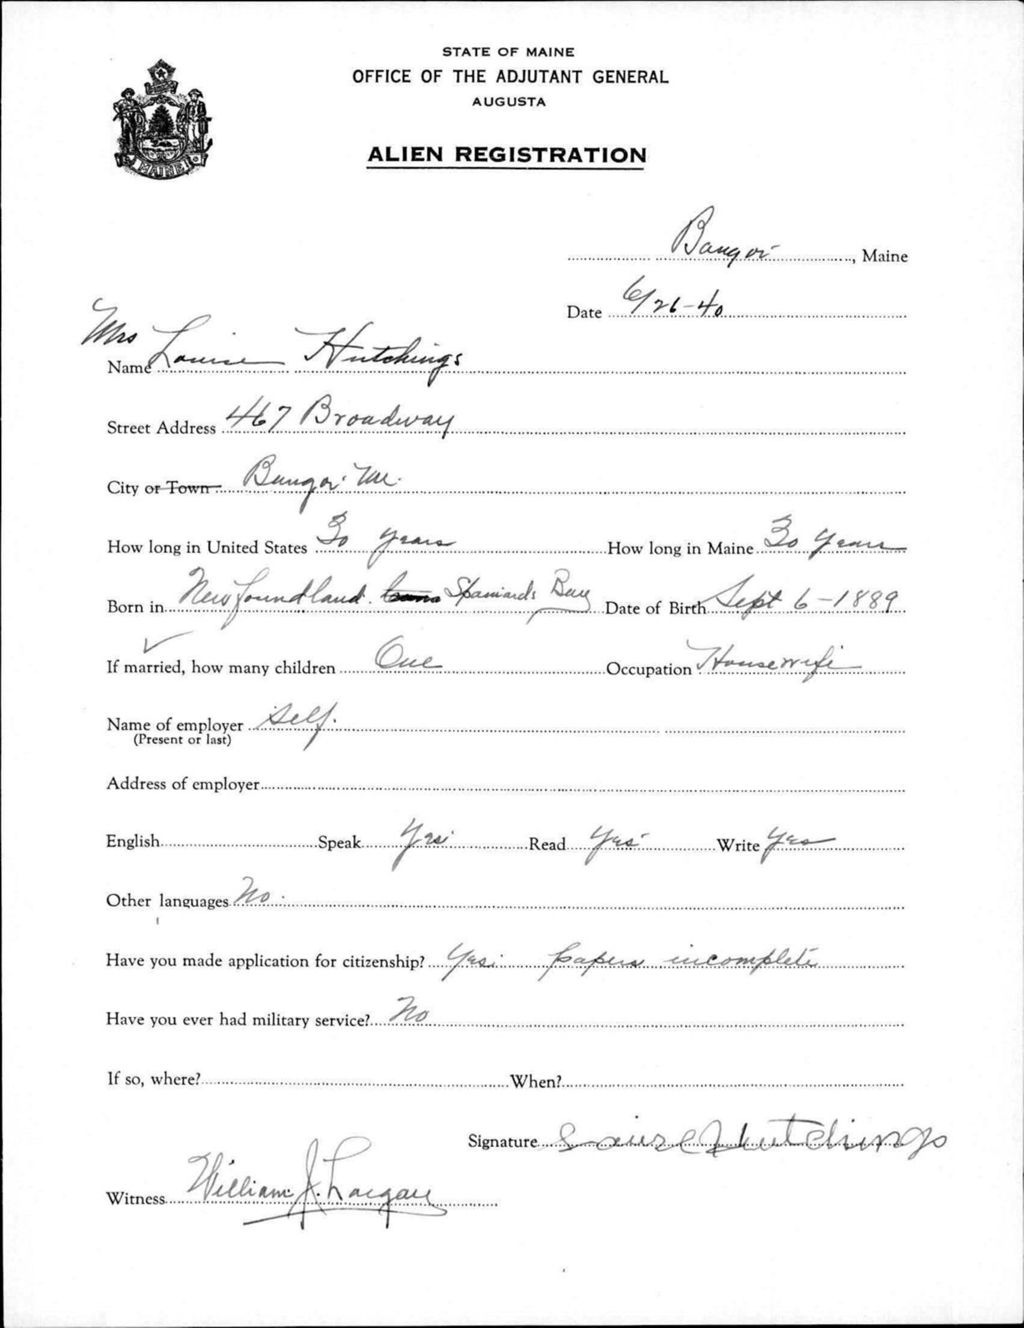 STATE OF MAINE
OFFICE OF THE ADJUTANT GENERAL
AUGUSTA
MAINE
ALIEN REGISTRATION
Bangor, Maine
Date 6/26-40
Mrs
Name Louise Hutchings
Street Address 467 Broadway
City or Town Bangor Me.
How long in United States 30 years How long in Maine 30 years
Born in Newfoundland. Spaniards Bay Date of Birth Sept 6-1889
If married, how many children One Occupation Housewife
Name of employer Self.
(Present or last)
Address of employer
English Speak Yes Read Yes Write Yes
Other languages No.
Have you made application for citizenship? Yes. papers incomplete
Have you ever had military service? No
If so, where? When?
Signature Louise Hutchings
Witness William J. Largay